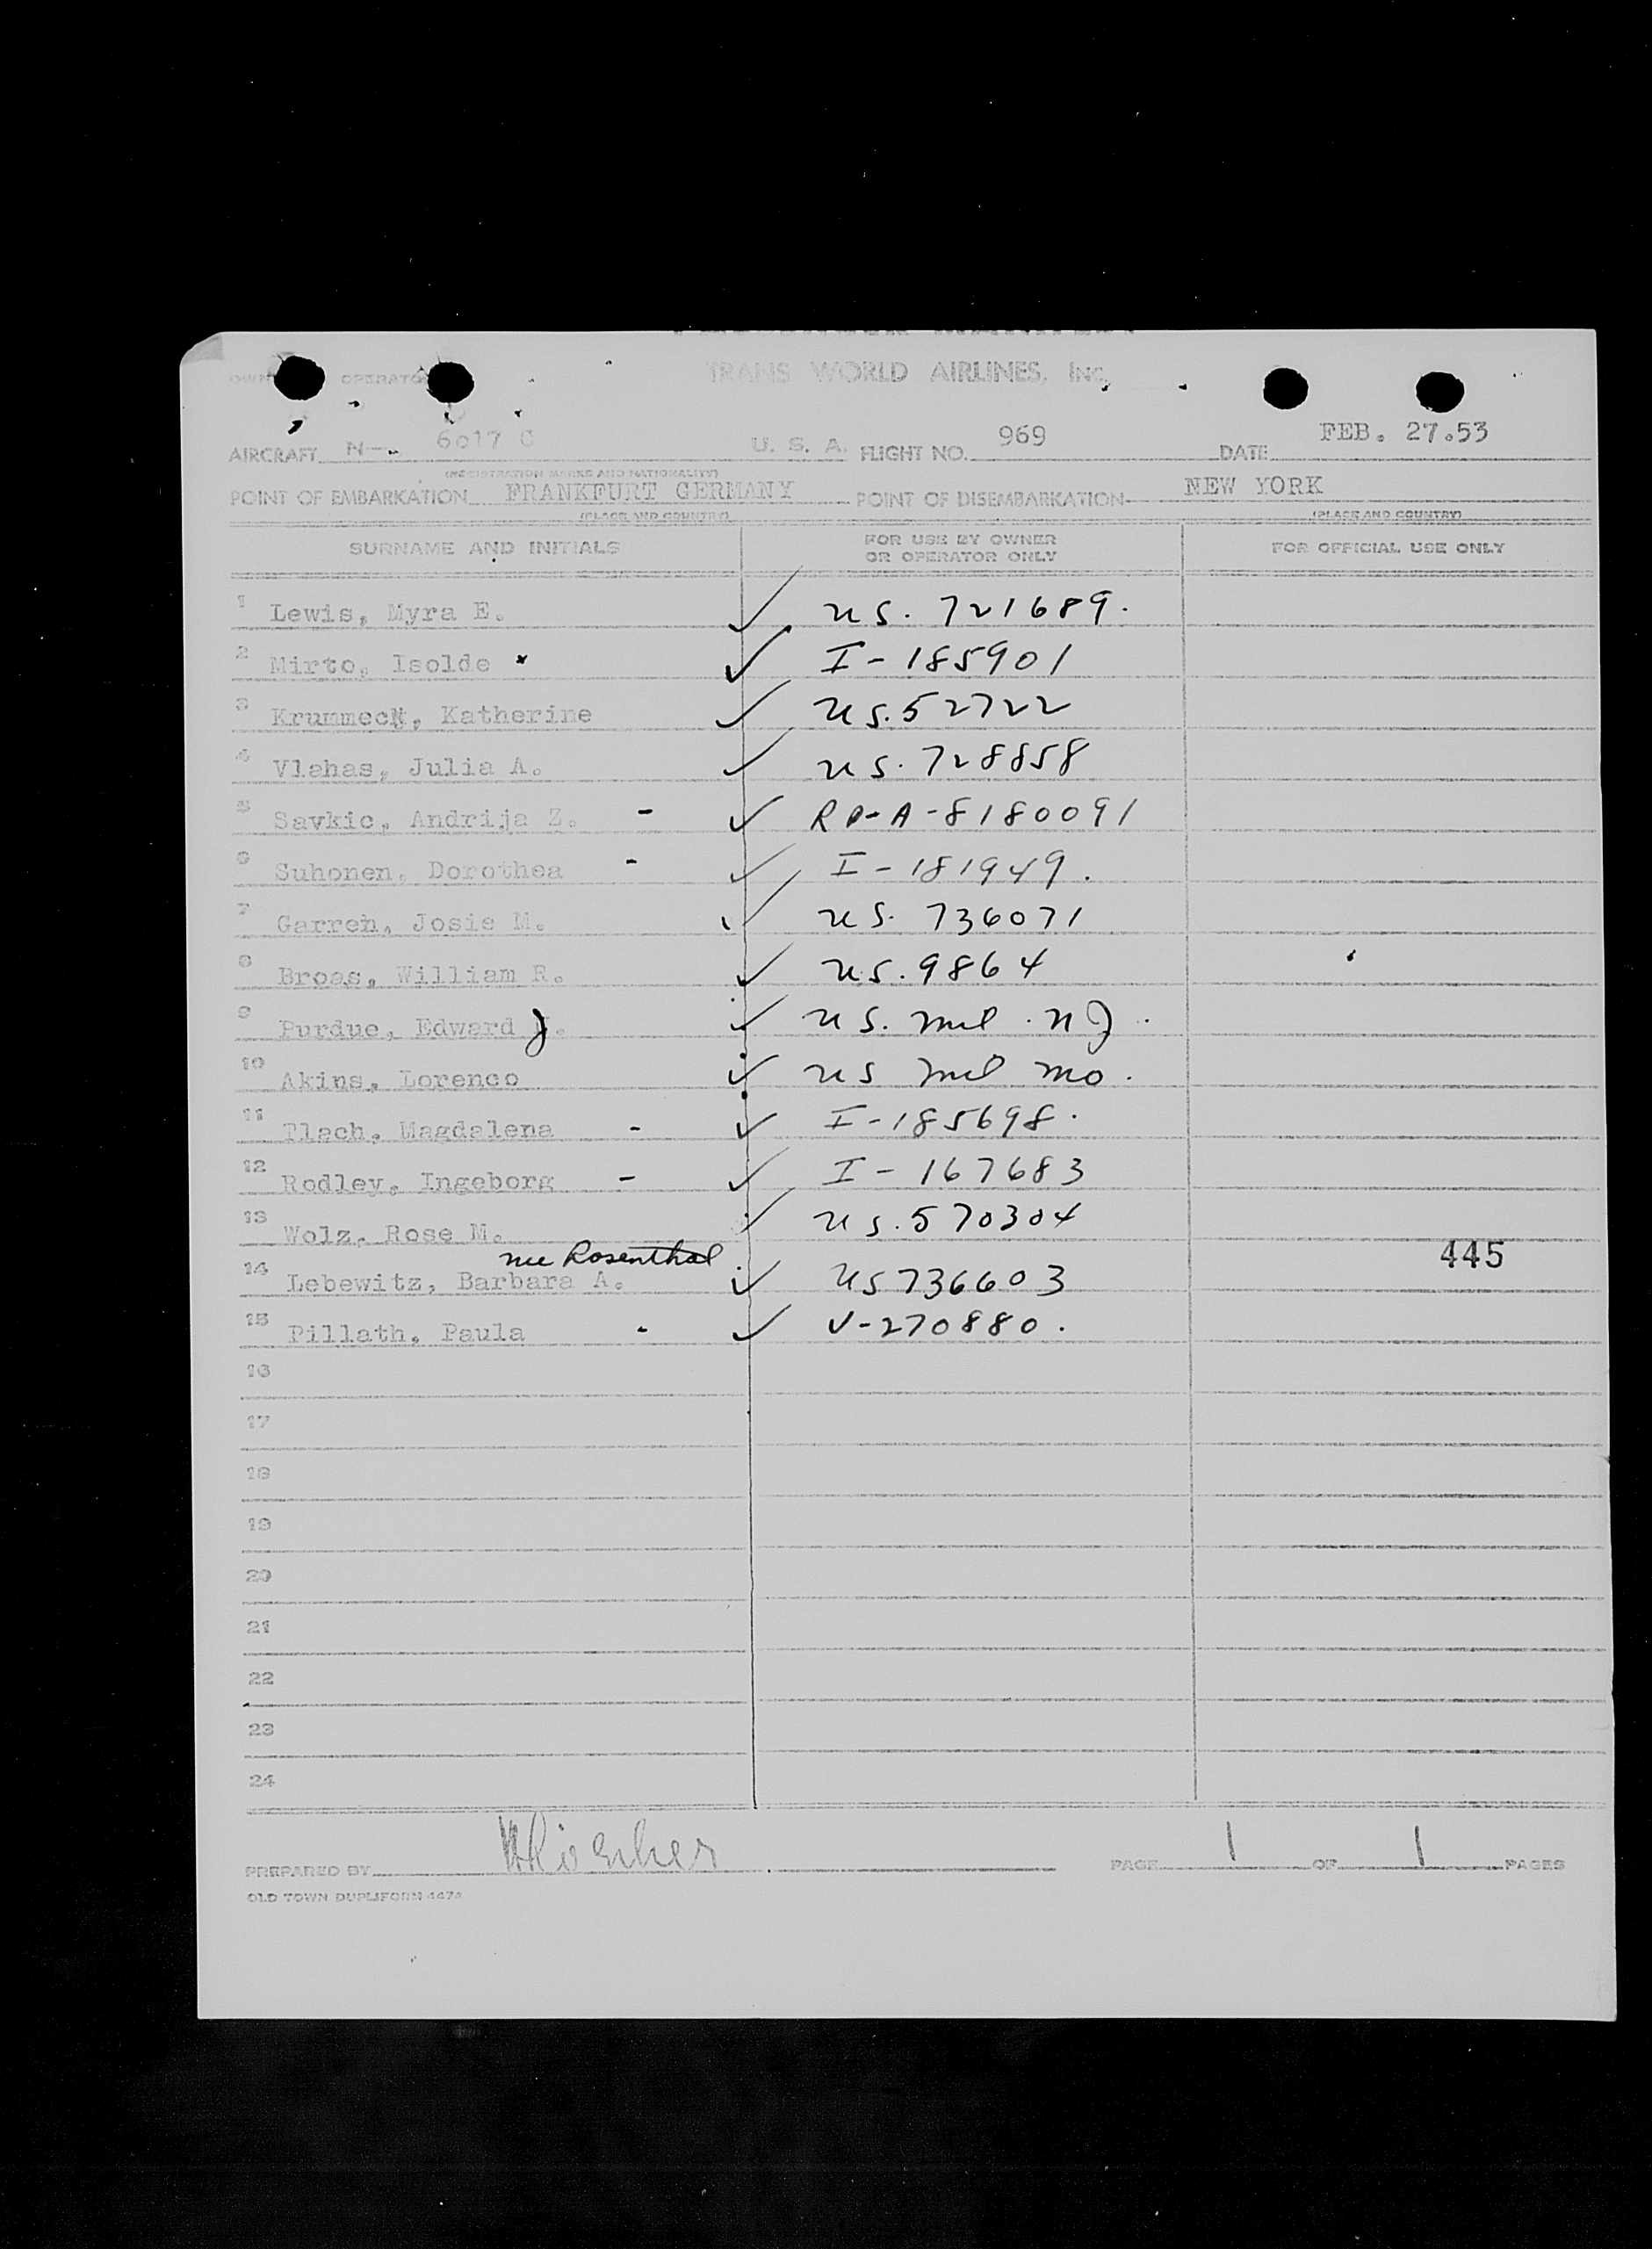 TRANS WORLD AIRLINES, INC.
AIRCRAFT N-- 6017 C U. S. A. FLIGHT NO. 969 DATE FEB. 27.53
(REGISTRATION MARKS AND NATIONALITY)
POINT OF EMBARKATION FRANKFURT GERMANY POINT OF DISEMBARKATION NEW YORK
(PLACE AND COUNTRY) (PLACE AND COUNTRY)
SURNAME AND INITIALS FOR USE BY OWNER OR OPERATOR ONLY FOR OFFICIAL USE ONLY
1 Lewis, Myra E. ✓ US. 721689.
2 Mirto, Isolde ✓ I-185901
3 Krummeck, Katherine ✓ US. 52722
4 Vlahas, Julia A. ✓ US. 728858
5 Savkic, Andrija Z. - ✓ RP-A-8180091
6 Suhonen, Dorothea - ✓ I-181949.
7 Garren, Josie M. ✓ US. 736071
8 Broas, William R. ✓ US. 9864
9 Purdue, Edward J. ✓ US. mil. NJ.
10 Akins, Lorenco ✓ US mil mo.
11 Tlach, Magdalena - ✓ I-185698.
12 Rodley, Ingeborg - ✓ I-167683
13 Wolz, Rose M. ✓ US. 570304
nee Rosenthal
445
14 Lebewitz, Barbara A. ✓ US 736603
15 Pillath, Paula - ✓ V-270880.
16
17
18
19
20
21
22
23
24
PREPARED BY PAGE 1 OF 1 PAGES
OLD TOWN DUPLIFORM 4474